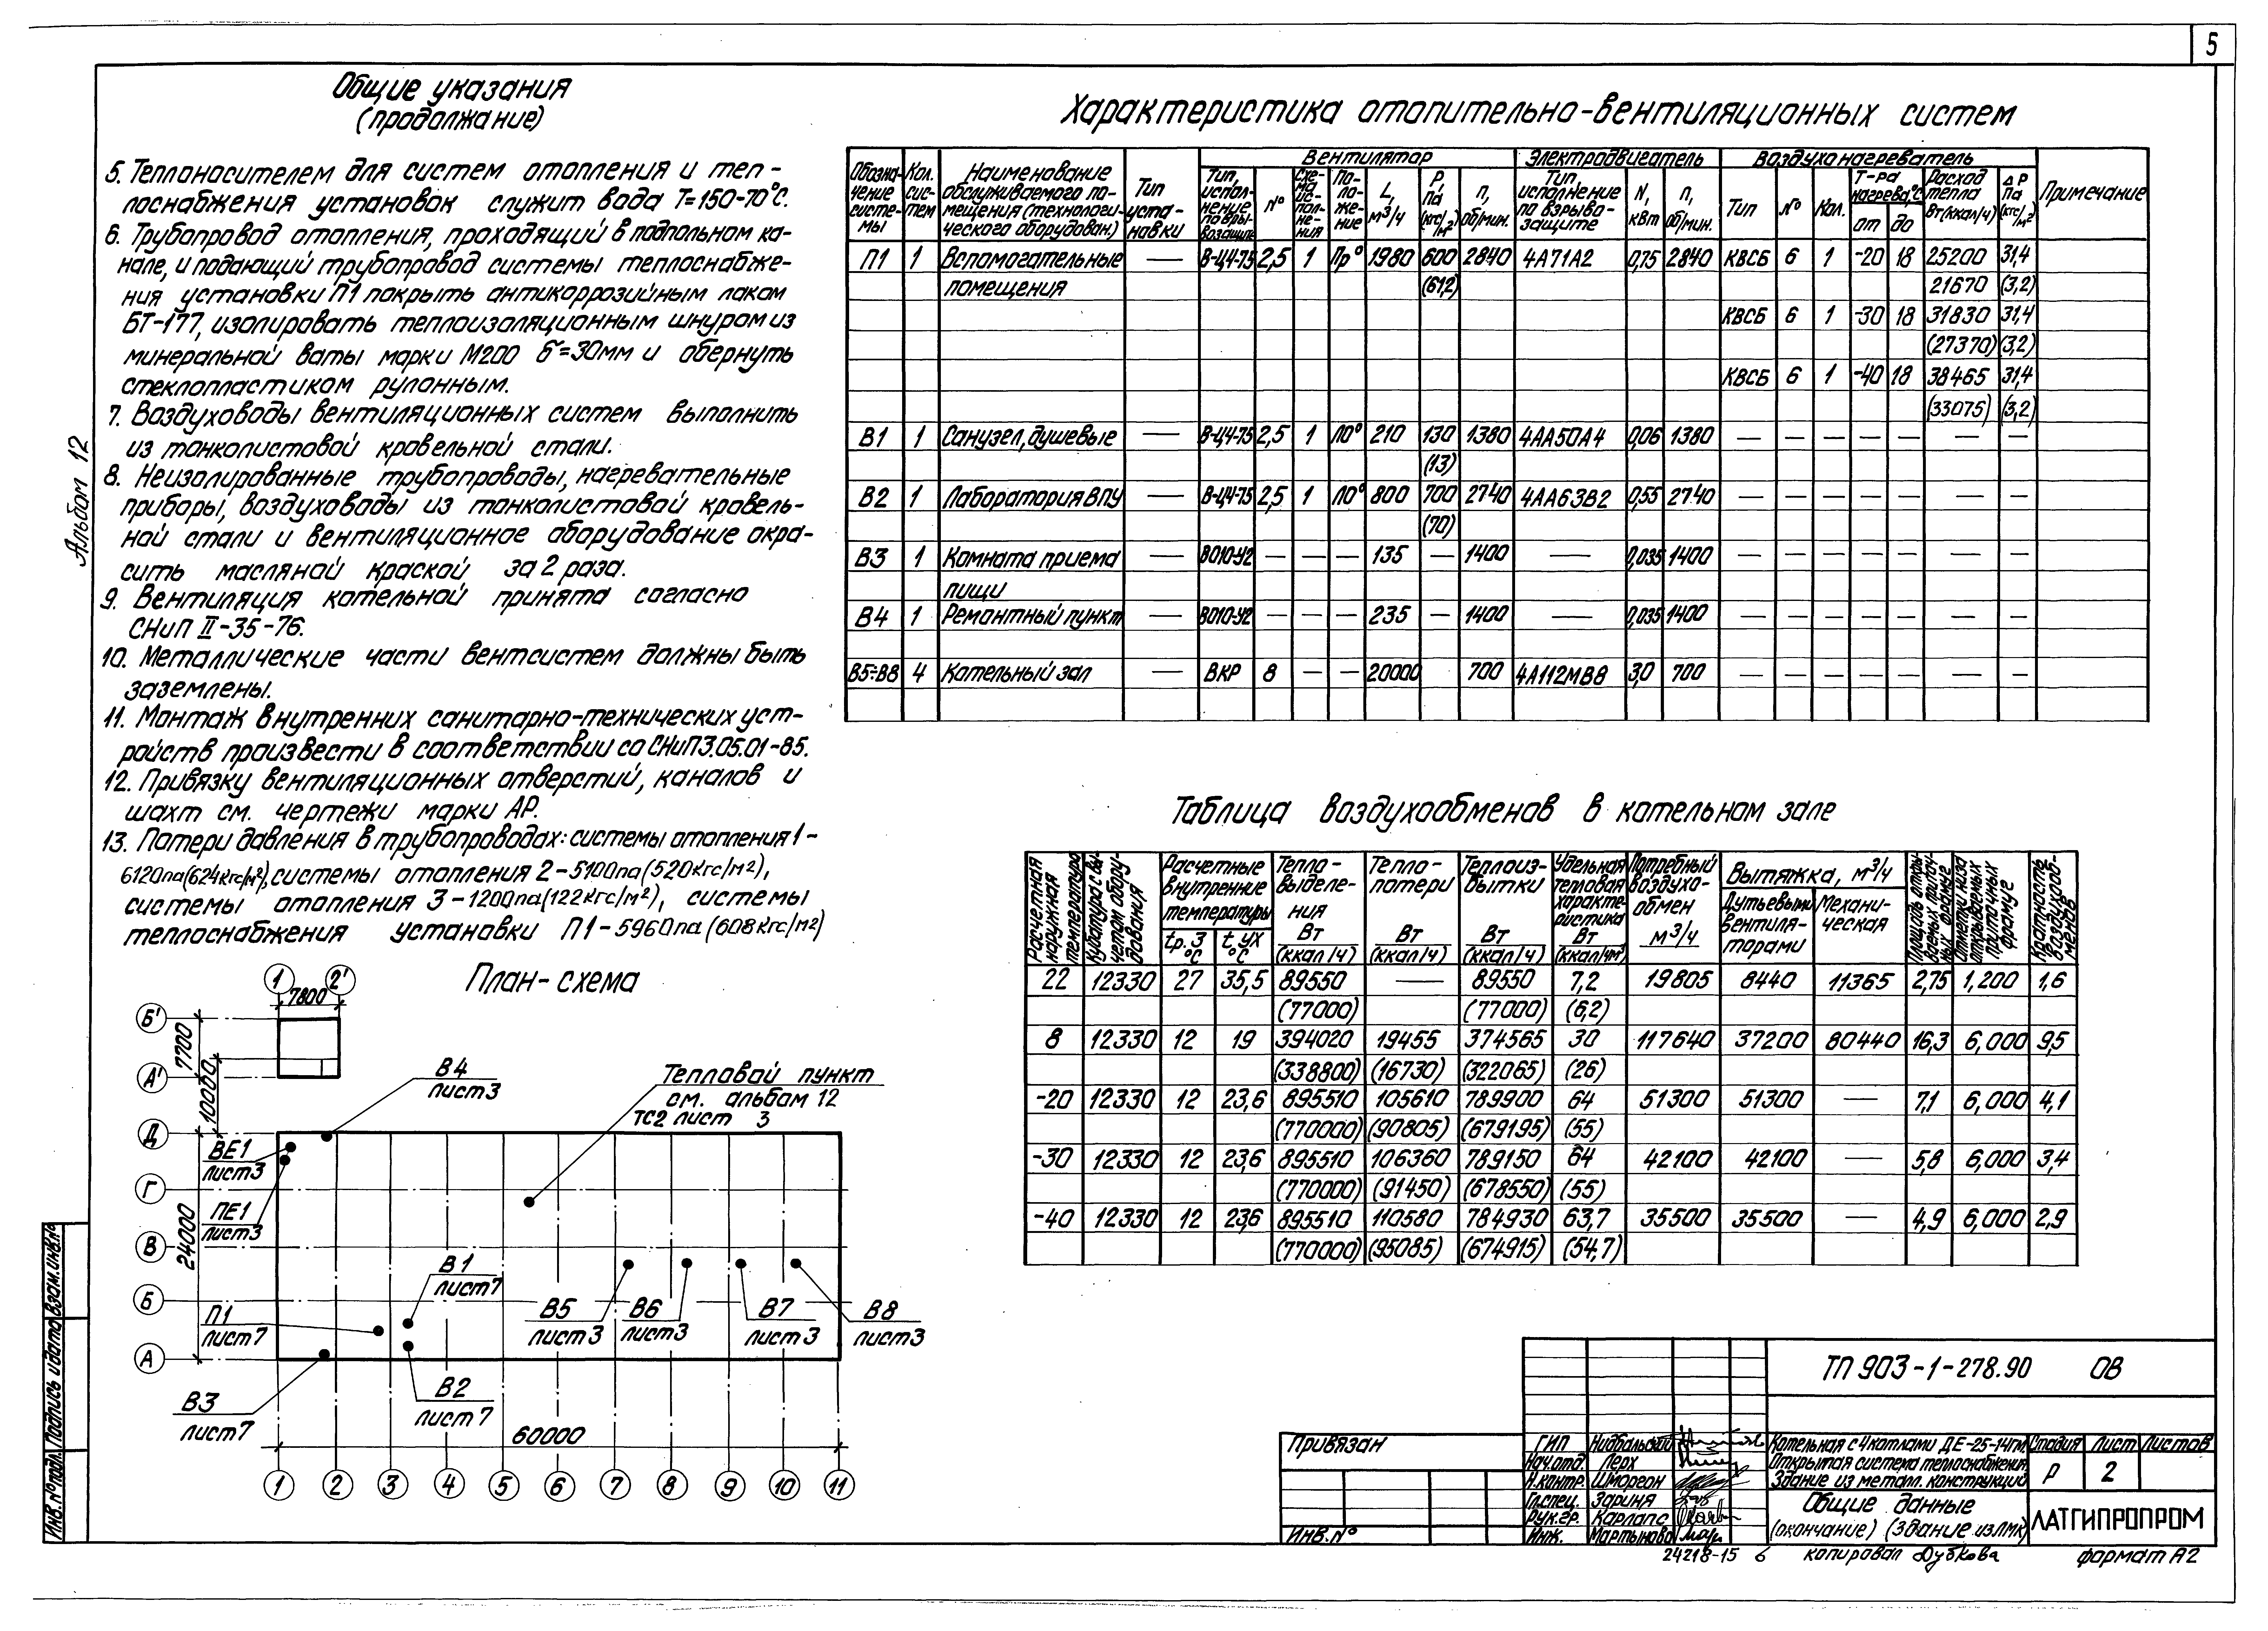 5
Общие указания
(продолжание)
5. Теплоносителем для систем отопления и теп-
лоснабжения установок служит вода Т=150-70°С.
6. Трубопровод отопления, проходящий в подпольном ка-
нале, и подающий трубопровод системы теплоснабже-
ния установки П1 покрыть антикоррозийным лаком
БТ-177, изолировать теплоизоляционным шнуром из
минеральной ваты марки М200 δ=30мм и обернуть
стеклопластиком рулонным.
7. Воздуховоды вентиляционных систем выполнить
из тонколистовой кровельной стали.
8. Неизолированные трубопроводы, нагревательные
приборы, воздуховоды из тонколистовой кровель-
ной стали и вентиляционное оборудование окра-
сить масляной краской за 2 раза.
9. Вентиляция котельной принята согласно
СНиП II-35-76.
10. Металлические части вентсистем должны быть
заземлены.
11. Монтаж внутренних санитарно-технических уст-
ройств произвести в соответствии со СНиП3.05.01-85.
12. Привязку вентиляционных отверстий, каналов и
шахт см. чертежи марки АР.
13. Потери давления в трубопроводах: системы отопления 1-
6120па(624кгс/м²), системы отопления 2-5100па(520кгс/м²),
системы отопления 3-1200па(122кгс/м²), системы
теплоснабжения установки П1-5960па(608кгс/м²)
Альбом 12
Характеристика отопительно-вентиляционных систем
Обозна-чение систе-мы | Кол. сис-тем | Наименование обслуживаемого по-мещения (технологи-ческого оборудован.) | Тип уста-новки | Вентилятор | Электродвигатель | Воздухонагреватель | Примечание
Тип, испол-нение по взры-возащите | № | Схе-ма ис-пол-не-ния | По-ло-же-ние | L, м³/ч | Р, Па (кгс/м²) | п, об/мин. | Тип, исполнение по взрыво-защите | N, кВт | п, об/мин. | Тип | № | Кол. | Т-ра нагрева,°С от до | Расход тепла Вт(ккал/ч) | ΔР Па (кгс/м²)
П1 1 Вспомогательные — В-Ц4-75 2,5 1 Пр° 1980 600 2840 4А71А2 0,75 2840 КВСБ 6 1 -20 18 25200 31,4
помещения (61,2) 21670 (3,2)
КВСБ 6 1 -30 18 31830 31,4
(27370) (3,2)
КВСБ 6 1 -40 18 38465 31,4
(33075) (3,2)
В1 1 Санузел, душевые — В-Ц4-75 2,5 1 Л0° 210 130 1380 4АА50А4 0,06 1380 — — — — — — —
(13)
В2 1 Лаборатория ВПУ — В-Ц4-75 2,5 1 Л0° 800 700 2740 4АА63В2 0,55 2740 — — — — — — —
(70)
В3 1 Комната приема — ВО10-У2 — — — 135 — 1400 — 0,035 1400 — — — — — — —
пищи
В4 1 Ремонтный пункт — ВО10-У2 — — — 235 — 1400 — 0,035 1400 — — — — — — —
В5÷В8 4 Котельный зал — ВКР 8 — — 20000 700 4А112МВ8 3,0 700 — — — — — — —
Таблица воздухообменов в котельном зале
Расчетная наружная температура | Кубатура с вы-четом обору-дования | Расчетные внутренние температуры tр.з °С t ух °С | Тепло-выделе-ния Вт (ккал/ч) | Тепло-потери Вт (ккал/ч) | Теплоиз-бытки Вт (ккал/ч) | Удельная тепловая характе-ристика Вт (ккал/чм³) | Потребный воздухо-обмен м³/ч | Вытяжка, м³/ч Дутьевыми вентиля-торами Механи-ческая | Площадь откры-ваемых приточ-ных фрамуг | Отметка низа открываемых приточных фрамуг | Кратность воздухооб-менов
22 12330 27 35,5 89550 — 89550 7,2 19805 8440 11365 2,75 1,200 1,6
(77000) (77000) (6,2)
8 12330 12 19 394020 19455 374565 30 117640 37200 80440 16,3 6,000 9,5
(338800) (16730) (322065) (26)
-20 12330 12 23,6 895510 105610 789900 64 51300 51300 — 7,1 6,000 4,1
(770000) (90805) (679195) (55)
-30 12330 12 23,6 895510 106360 789150 64 42100 42100 — 5,8 6,000 3,4
(770000) (91450) (678550) (55)
-40 12330 12 23,6 895510 110580 784930 63,7 35500 35500 — 4,9 6,000 2,9
(770000) (95085) (674915) (54,7)
План-схема
1 2'
7800
Б'
7700
А'
10000
В4
лист3
Тепловой пункт
см. альбом 12
ТС2 лист 3
Д
ВЕ1
лист3
Г
ПЕ1
лист3
24000
В
В1
лист7
Б
П1
лист7
В5
лист3
В6
лист3
В7
лист3
В8
лист3
А
В3
лист7
В2
лист7
60000
1 2 3 4 5 6 7 8 9 10 11
Инв.№ подл. Подпись и дата Взам.инв.№
Привязан
Инв.№
ТП 903-1-278.90 ОВ
ГИП Нидбальский
Нач.отд. Лерх
Н.контр. Шморгон
Гл.спец. Зариня
Рук.гр. Карлапс
Инж. Мартынова
Котельная с 4 котлами ДЕ-25-14ГМ.
Открытая система теплоснабжения.
Здание из металл. конструкций
Стадия Лист Листов
Р 2
Общие данные
(окончание) (Здание из ЛМК)
ЛАТГИПРОПРОМ
24218-15 6 копировал Дубкова формат А2